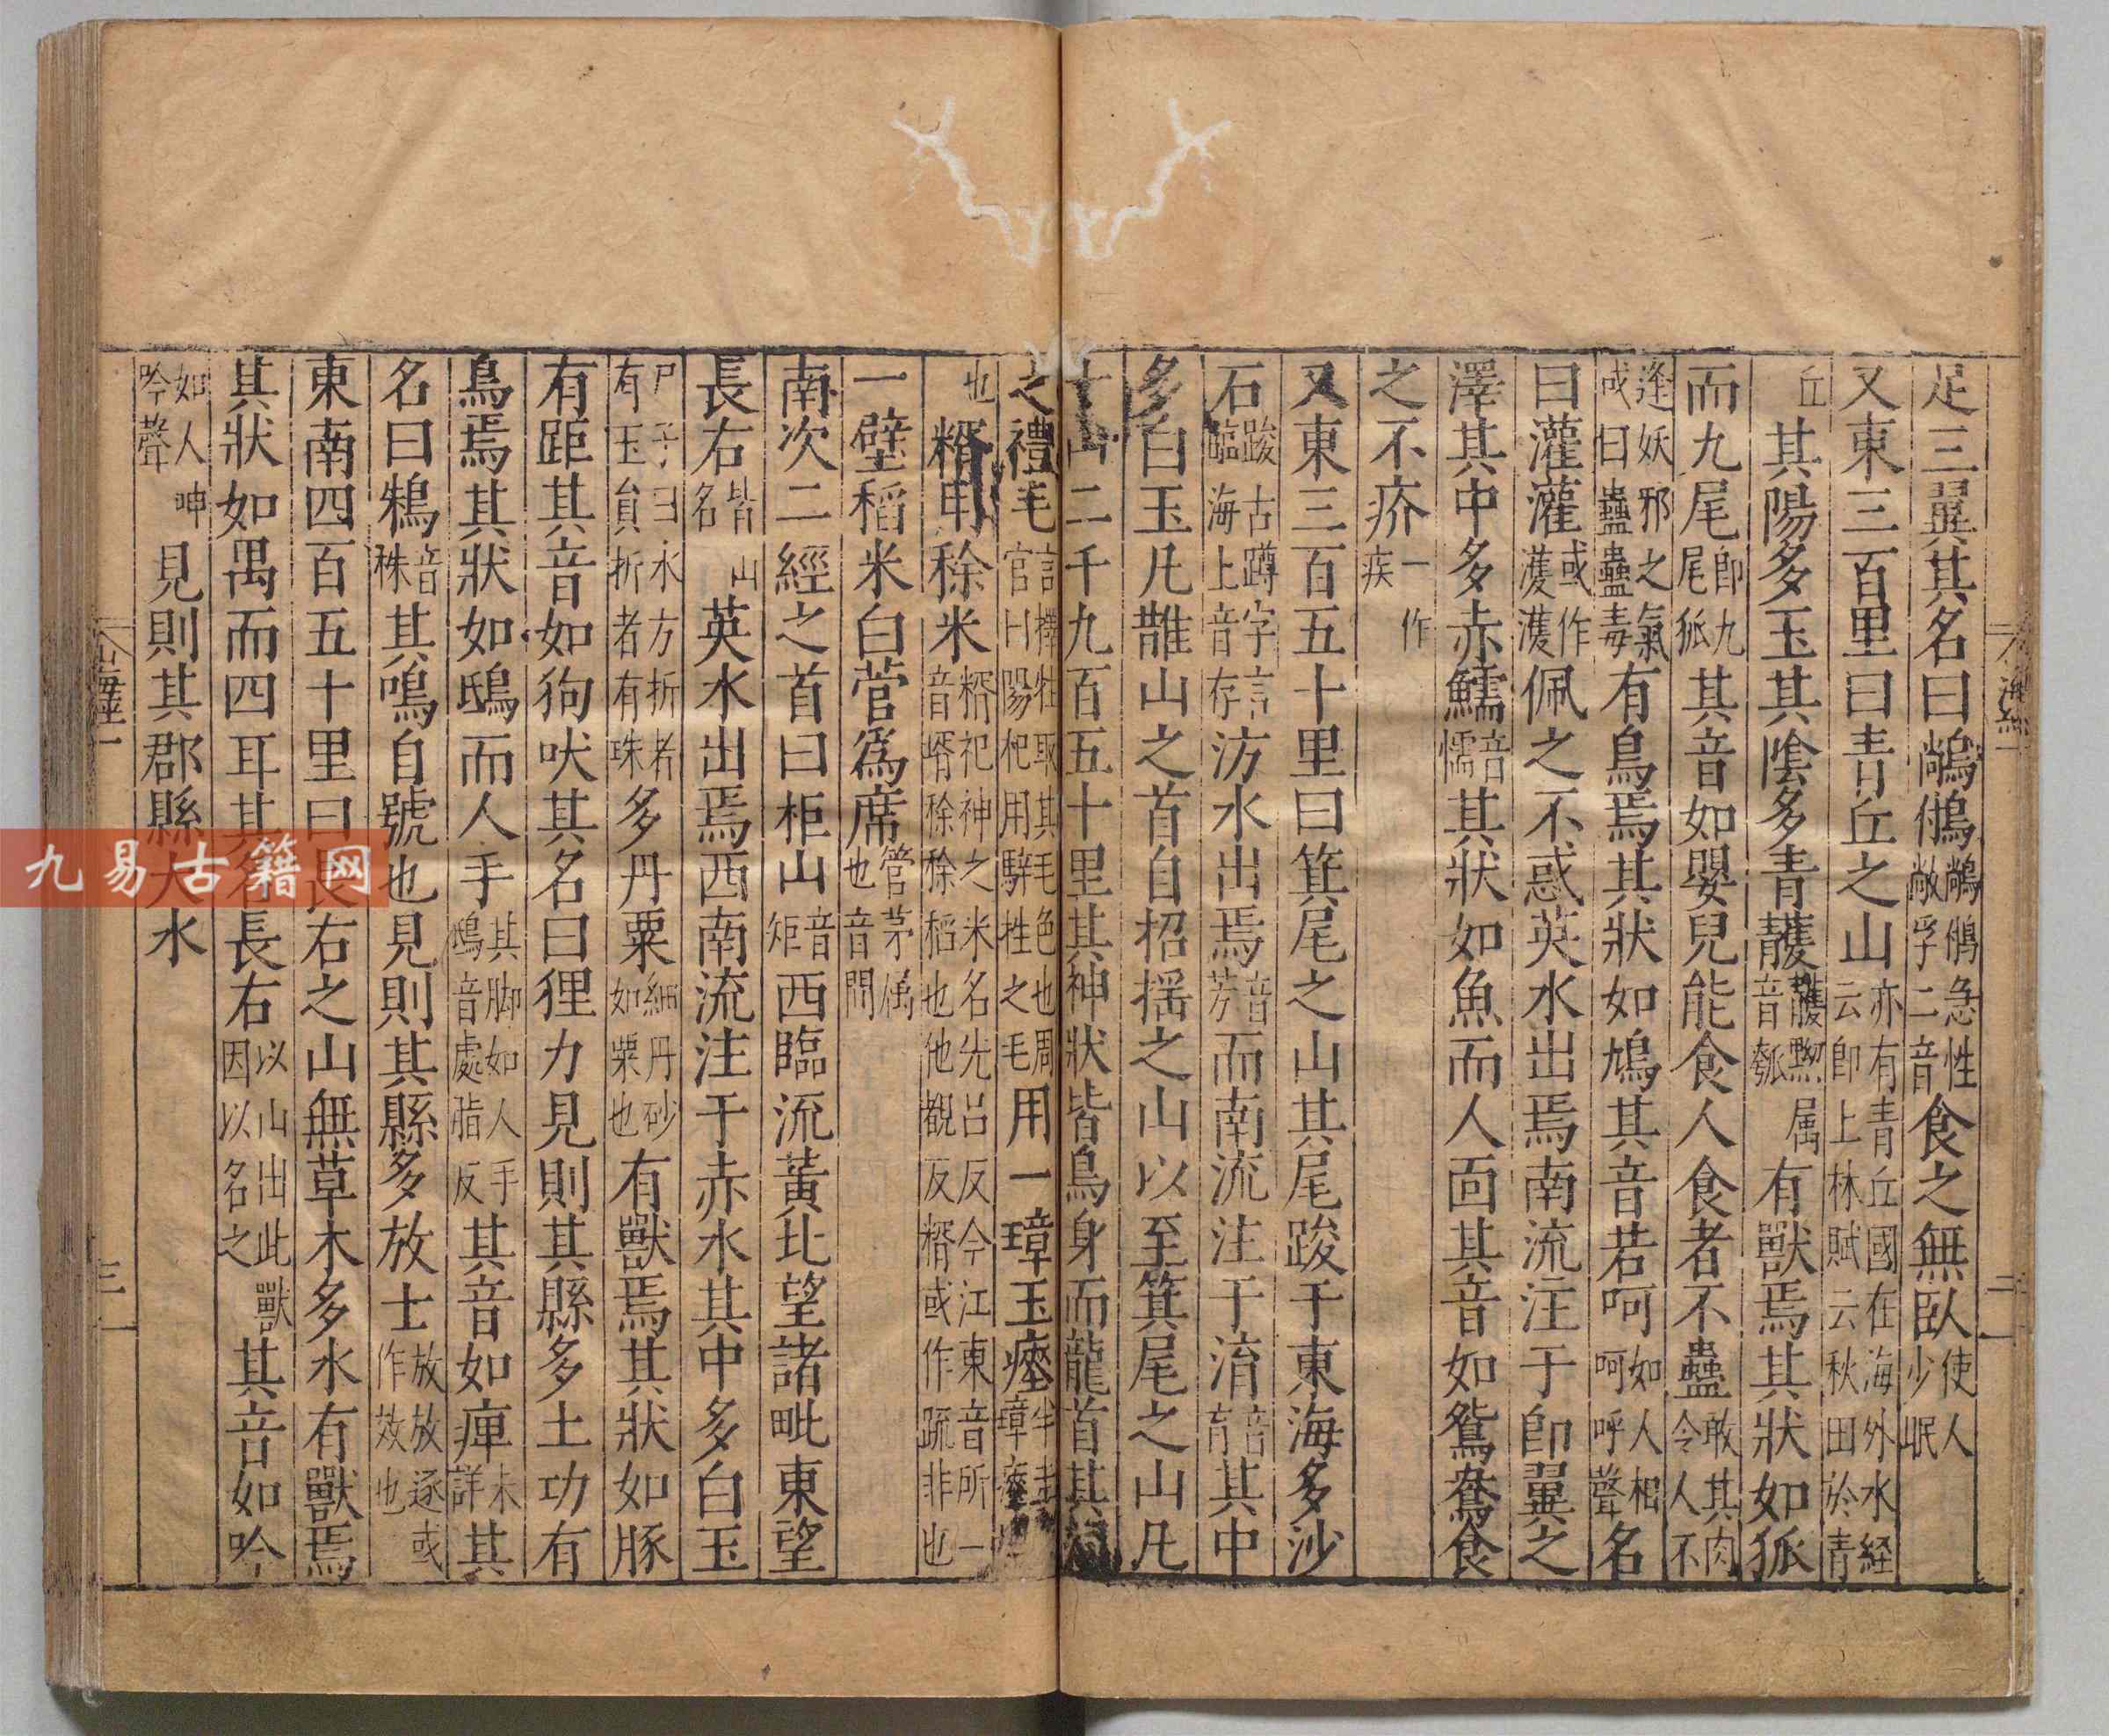 足三翼其名曰鵸䳜鵸䳜急性敞孚二音食之無臥使人少眠
又東三百里曰青丘之山亦有青丘國在海外水経云即上林賦云秋田於青
丘其陽多玉其陰多青䨼䨼黝属音瓠有獸焉其狀如狐
而九尾即九尾狐其音如嬰兒能食人食者不蠱敢其肉令人不
逢妖邪之氣或曰蠱蠱毒有鳥焉其狀如鳩其音若呵如人相呵呼聲名
曰灌灌或作濩濩佩之不惑英水出焉南流注于即翼之
澤其中多赤鱬音懦其狀如魚而人面其音如鴛鴦食
之不疥一作疾
又東三百五十里曰箕尾之山其尾踆于東海多沙
石踆古蹲字言臨海上音存汸水出焉音芳而南流注于淯音育其中
多白玉凡䧿山之首自招揺之山以至箕尾之山凡
十山二千九百五十里其神狀皆鳥身而龍首其祠
之禮毛言擇牲取其毛色也周官曰陽祀用騂牲之毛用一璋玉瘞半圭璋瘞埋
也糈用稌米糈祀神之米名先呂反今江東音所一音壻稌稌稻也他覩反糈或作疏非也
一壁稻米白菅爲席菅茅属也音間
南次二經之首曰柜山音矩西臨流黃北望諸毗東望
長右皆山名英水出焉西南流注于赤水其中多白玉
尸子曰水方折者有玉員折者有珠多丹粟細丹砂如粟也有獸焉其狀如豚
有距其音如狗吠其名曰狸力見則其縣多土功有
鳥焉其狀如鴟而人手其脚如人手鴟音處脂反其音如痺未詳其
名曰鴸音株其鳴自號也見則其縣多放士放放逐或作效也
東南四百五十里曰長右之山無草木多水有獸焉
其狀如禺而四耳其名長右以山出此獸因以名之其音如吟
如人呻吟聲見則其郡縣大水
山海經一
三
二
九易古籍网